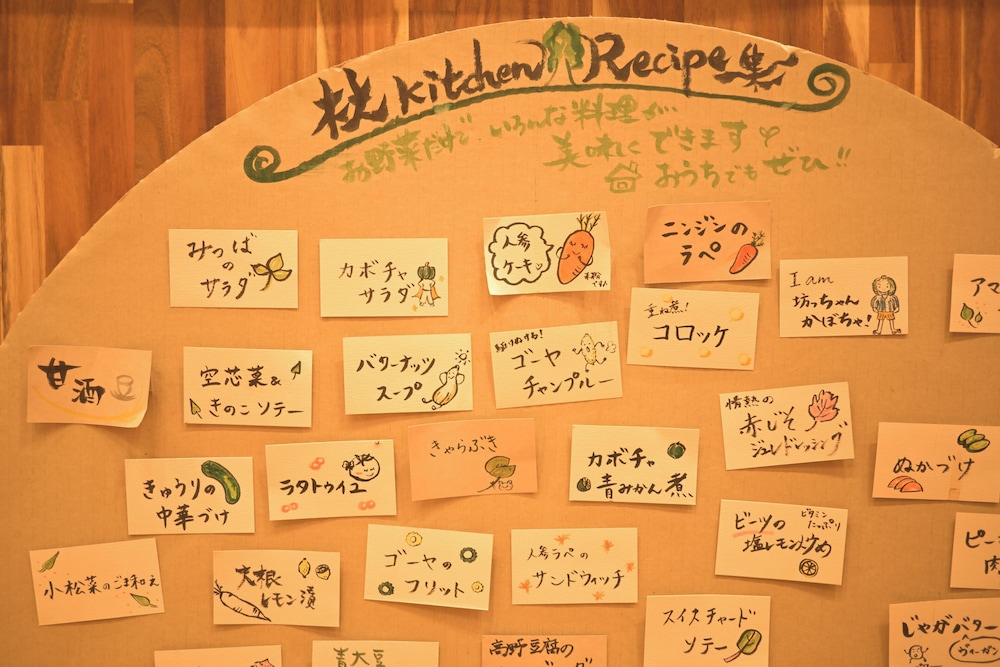 kitchen Recipe集
お野菜だけで いろんな料理が
美味しくできます
おうちでもぜひ!!
みつば
の
サラダ
カボチャ
サラダ
人参
ケーキッ
ニンジンの
ラペ
I am
坊っちゃん
かぼちゃ!
アマ
甘酒
空芯菜&
きのこソテー
バターナッツ
スープ
駆けぬける!
ゴーヤ
チャンプルー
重ね煮!
コロッケ
情熱の
赤じそ
ジュレドレッシング
きゅうりの
中華づけ
ラタトゥイユ
きゃらぶき
カボチャ
青みかん煮
ぬかづけ
小松菜のごま和え
大根
レモン漬
ゴーヤの
フリット
人参ラペの
サンドウィッチ
ビーツの
ビタミン
たっぷり
塩レモン炒め
ピー
肉
スイスチャード
ソテー
じゃがバター
ヴィーガン
青大豆
高野豆腐の